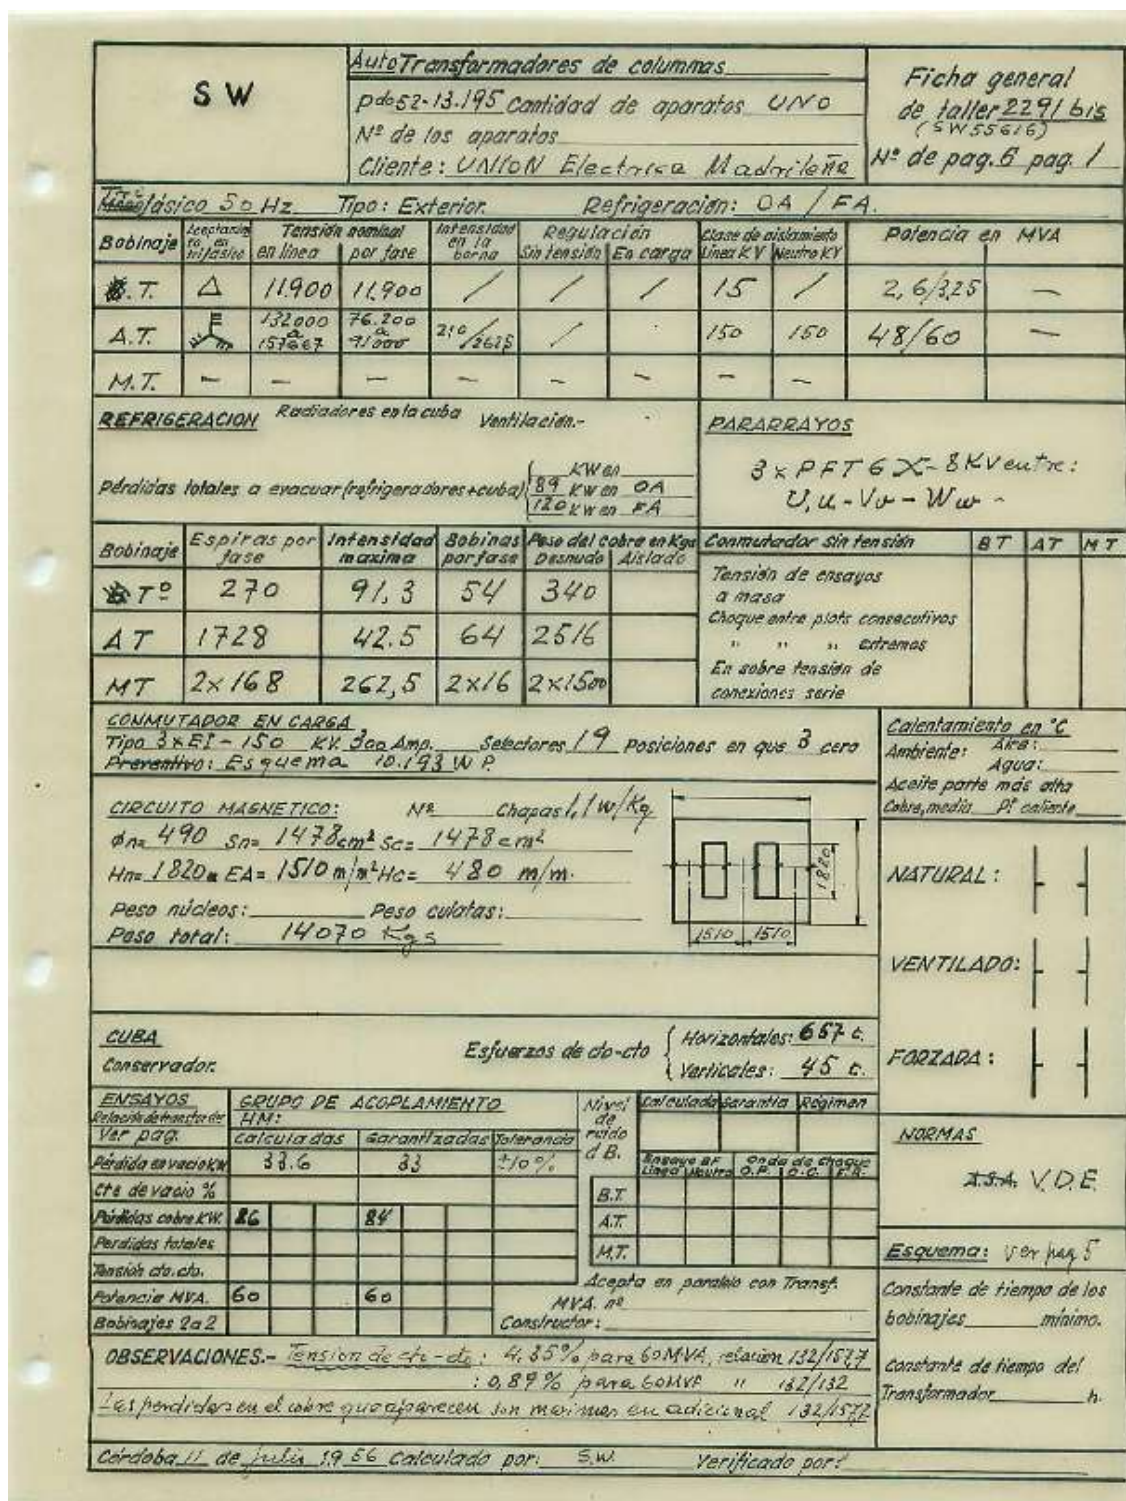 SW
AutoTransformadores de columnas
Pdo 52-13.195 Cantidad de aparatos UNO
Nº de los aparatos
Cliente: UNION Electrica Madrileña
Ficha general
de taller 2291 bis
(SW55616)
Nº de pag. 6 pag. 1
fásico 50 Hz Tipo: Exterior. Refrigeración: OA / FA.
Bobinaje en trifásico Tensión nominal en línea por fase Intensidad en la borna Regulación Sin tensión En carga Clase de aislamiento Línea KV Neutro KV Potencia en MVA
.T. △ 11.900 11.900 / / / 15 / 2,6/3,25 —
A.T. 132000 a 157667 76.200 a 91000 210/262,5 / 150 150 48/60 —
M.T. — — — — — — — —
REFRIGERACION Radiadores en la cuba Ventilación.-
Pérdidas totales a evacuar (refrigeradores+cuba)
KW en
89 KW en OA
120 KW en FA
PARARRAYOS
3 x PFT 6 X-8KV entre:
U,u-Vv-Ww-
Bobinaje Espiras por fase Intensidad maxima Bobinas por fase Peso del cobre en Kgs Desnudo Aislado
Tº 270 91,3 54 340
AT 1728 42.5 64 2516
MT 2x168 262,5 2x16 2x1500
Conmutador Sin tensión BT AT MT
Tensión de ensayos
a masa
Choque entre plots consecutivos
" " " extremos
En sobre tensión de
conexiones serie
CONMUTADOR EN CARGA
Tipo 3xEI-150 KV. 300 Amp. Selectores 19 Posiciones en que 3 cero
Preventivo: Esquema 10.193 W P.
Calentamiento en °C
Ambiente: Aire:
Agua:
Aceite parte más alta
Cobre, media Pt caliente
CIRCUITO MAGNETICO: Nº Chapas 1,1 w/Kg
Øn= 490 Sn= 1478 cm² Sc= 1478 cm²
Hn= 1820 EA= 1510 m/m Hc= 480 m/m.
Peso núcleos: Peso culatas:
Peso total: 14070 Kgs
1820
1510 1510
NATURAL:
VENTILADO:
FORZADA:
CUBA
Conservador.
Esfuerzos de cto-cto
Horizontales: 657 t.
Verticales: 45 t.
ENSAYOS
Ver pag.
GRUPO DE ACOPLAMIENTO
HM:
Calculadas Garantizadas Tolerancia
Pérdida en vacio KW 33.6 33 ±10%
Cte de vacio %
Pérdidas cobre KW. 86 84
Perdidas totales
Tensión cto. cto.
Potencia MVA. 60 60
Bobinajes 2 a 2
Nivel de ruido d B. Calculada Garantia Régimen
Ensayo BF Linea Neutro Onda de Choque O.P. O.C. F.R.
B.T.
A.T.
M.T.
Acepta en paralelo con Transf.
MVA. nº
Constructor:
NORMAS
A.S.A. V.D.E.
Esquema: Ver pag 5
Constante de tiempo de los
bobinajes mínimo.
Constante de tiempo del
Transformador h.
OBSERVACIONES.- Tension de cto-cto: 4,35% para 60MVA, relacion 132/157,7
: 0,89% para 60MVA " 132/132
Las perdidas en el cobre que aparecen son maximas en adicional 132/157,7
Córdoba 11 de julio 1956 Calculado por: S.W. Verificado por: